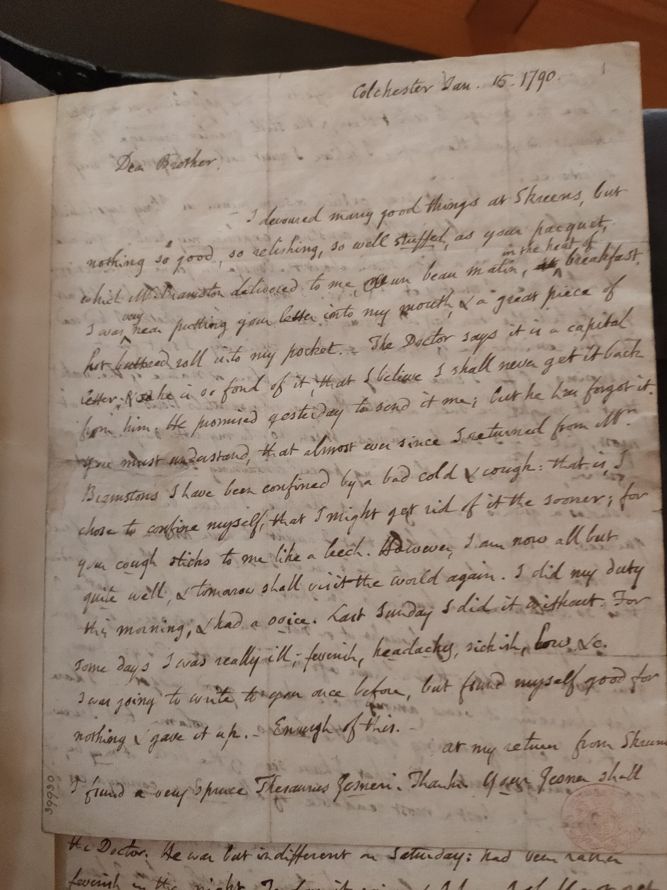 1
Colchester Jan. 16. 1790.
Dear Brother,
— I devoured many good things at Skreens, but
nothing so good, so relishing, so well stuffed, as your pacquet,
which Mr. Bramston delivered to me, un beau matin, in the heat of breakfast.
I was very near putting your letter into my mouth, & a great piece of
hot buttered roll into my pocket. — The Doctor says it is a capital
letter, & he is so fond of it, that I believe I shall never get it back
from him. He promised yesterday to send it me; but he has forgot it.
You must understand, that almost ever since I returned from Mr.
Bramstons I have been confined by a bad cold & cough: that is, I
chose to confine myself, that I might get rid of it the sooner; for
your cough sticks to me like a leech. However, I am now all but
quite well, & tomorow shall visit the world again. I did my duty
this morning, & had a voice. Last Sunday I did it without. For
some days I was really ill; feverish, headachy, sickish, low &c.
I was going to write to you once before, but found myself good for
nothing & gave it up. — Enough of this. —
at my return from Skreens
I found a very spruce Thesaurus Gesneri. Thanks. Your Gesner shall
39930
the Doctor. He was but indifferent on Saturday: had been rather
feverish in the night.